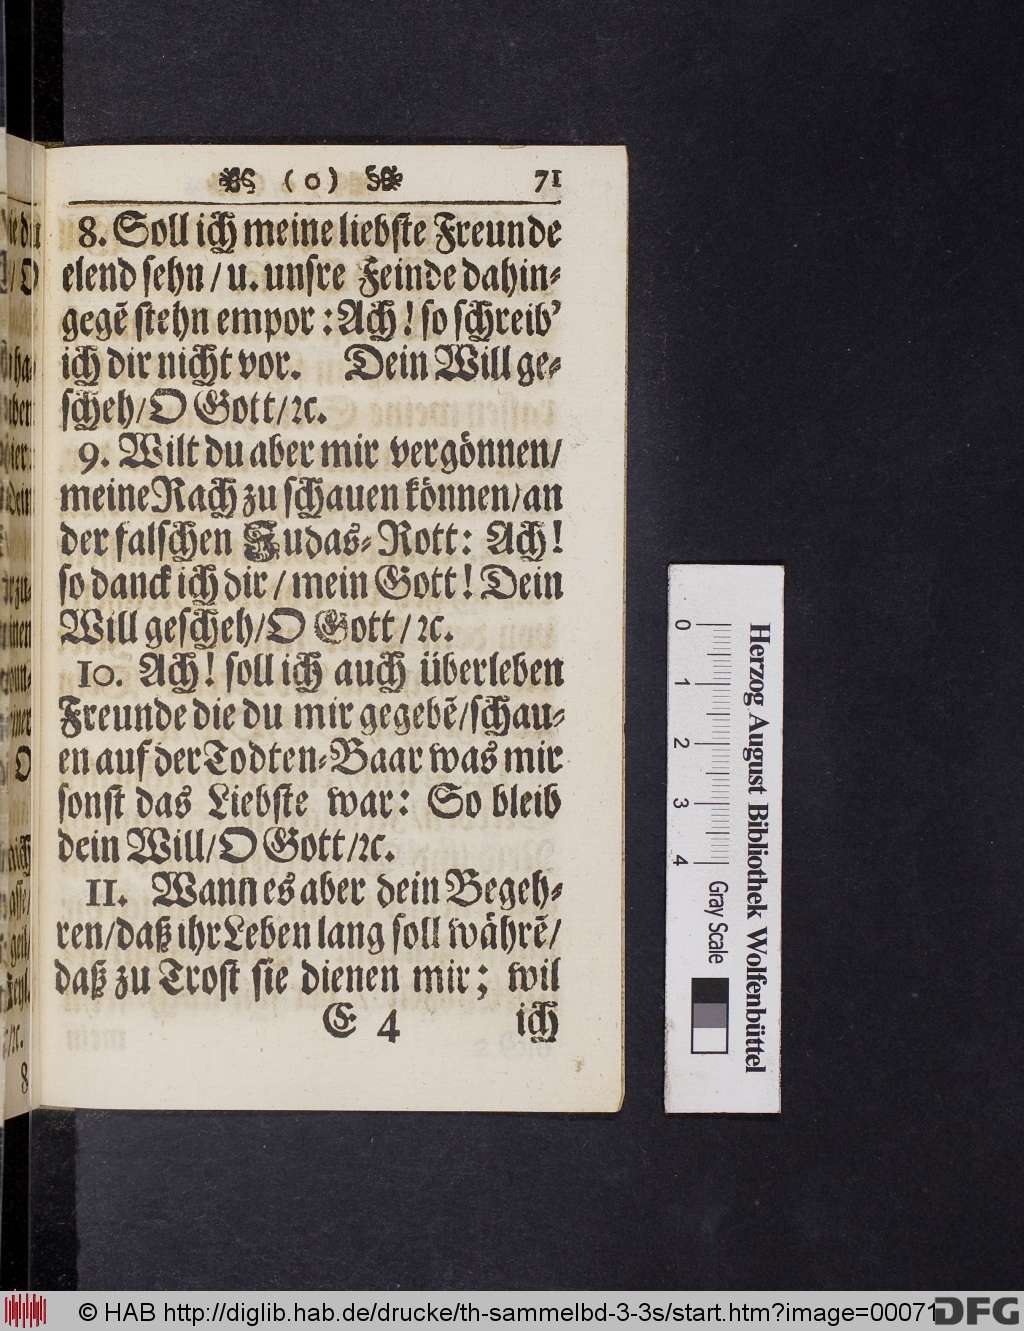 ( o ) 71
8. Soll ich meine liebste Freunde
elend sehn / u. unsre Feinde dahin-
gegẽ stehn empor : Ach ! so schreib'
ich dir nicht vor. Dein Will ge-
scheh / O Gott / ꝛc.
9. Wilt du aber mir vergönnen /
meine Rach zu schauen können / an
der falschen Judas- Rott: Ach !
so danck ich dir / mein Gott ! Dein
Will gescheh / O Gott / ꝛc.
10. Ach ! soll ich auch überleben
Freunde die du mir gegebẽ / schau-
en auf der Todten-Baar was mir
sonst das Liebste war: So bleib
dein Will / O Gott / ꝛc.
11. Wann es aber dein Begeh-
ren / daß ihr Leben lang soll währẽ /
daß zu Trost sie dienen mir; wil
E 4 ich
0 1 2 3 4 Gray Scale
Herzog August Bibliothek Wolfenbüttel
© HAB http://diglib.hab.de/drucke/th-sammelbd-3-3s/start.htm?image=00071
DFG